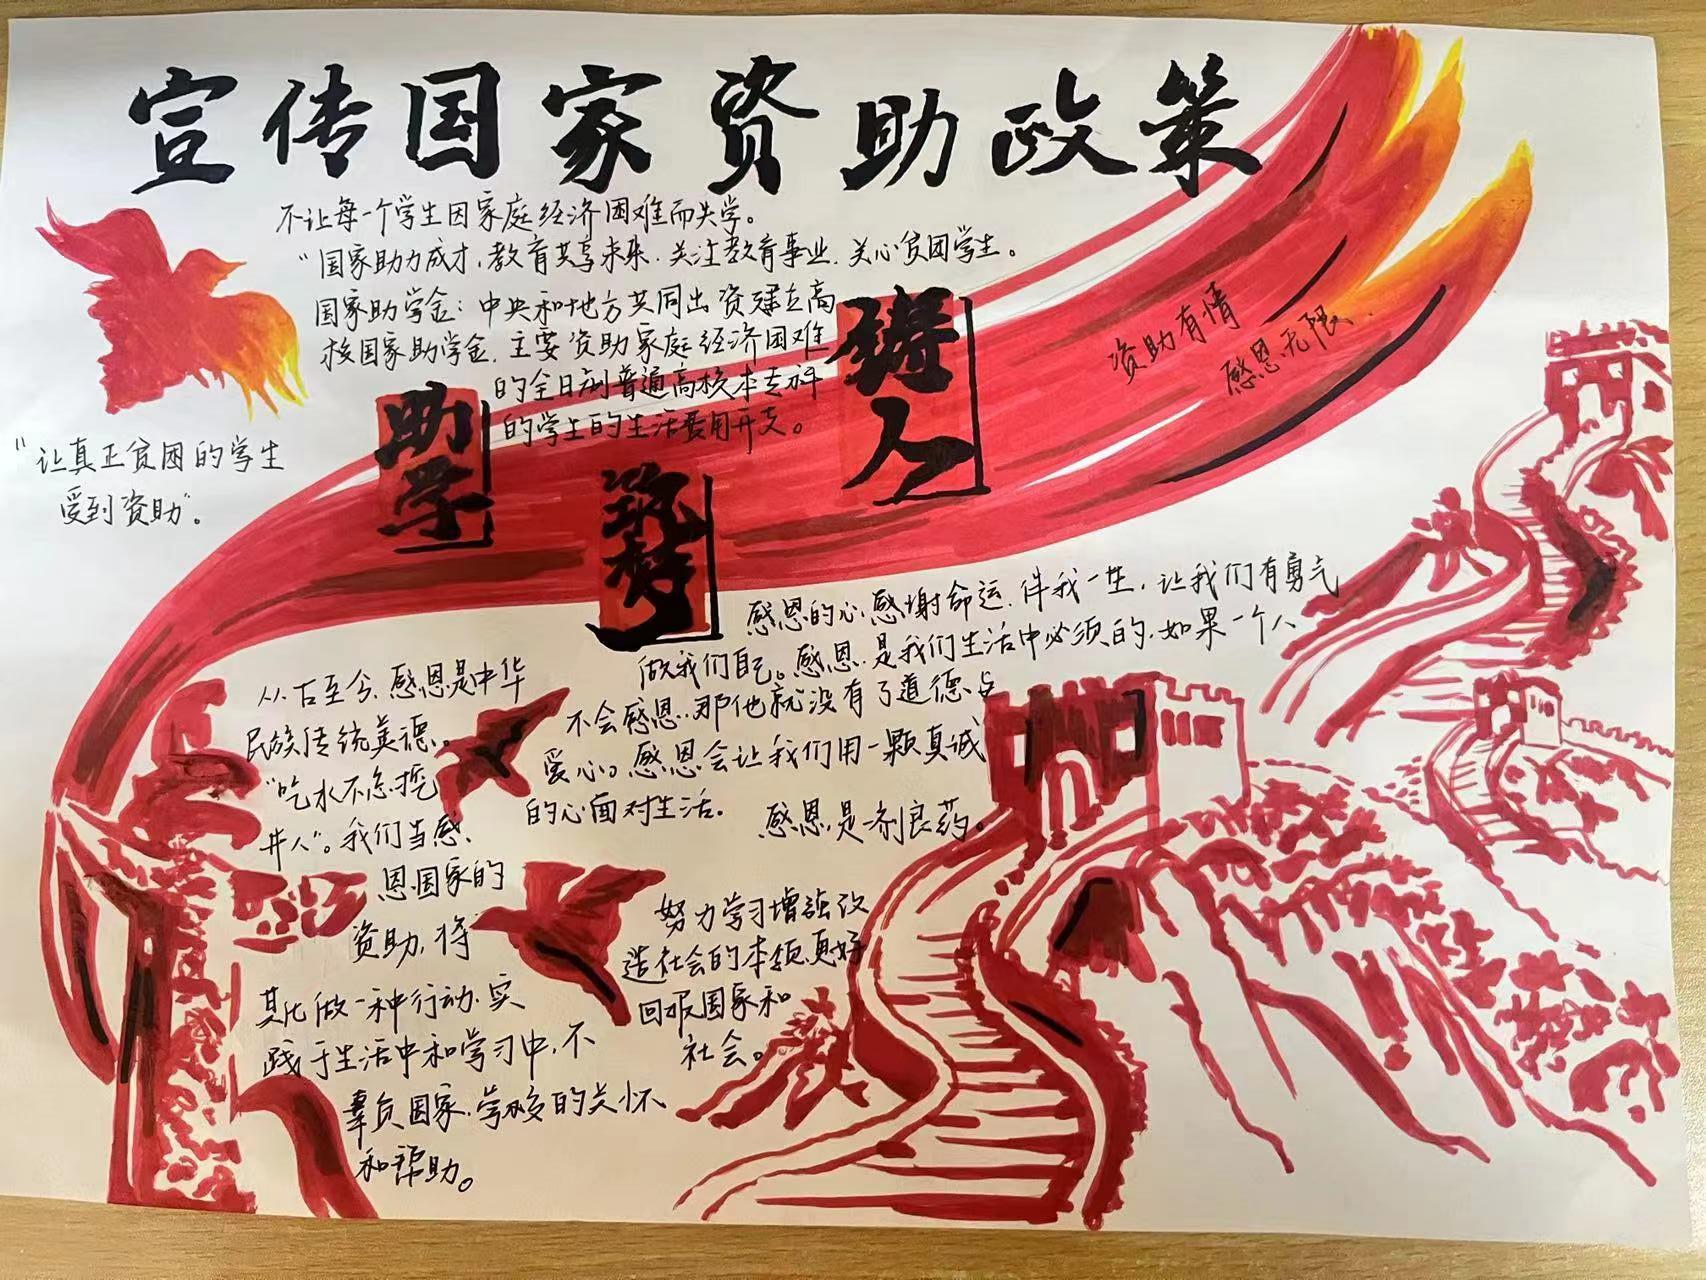 宣传国家资助政策
不让每一个学生因家庭经济困难而失学。
“国家助力成才,教育共享未来.关注教育事业.关心贫困学生。
国家助学金:中央和地方共同出资建立高
校国家助学金.主要资助家庭经济困难
的全日制普通高校本专科
的学生的生活费用开支。
助学
筑梦
铸人
资助有情
感恩无限.
“让真正贫困的学生
受到资助”。
感恩的心.感谢命运.伴我一生,让我们有勇气
做我们自己。感恩.是我们生活中必须的.如果一个人
不会感恩.那他就没有了道德与
爱心。感恩会让我们用一颗真诚
的心面对生活.
感恩是一剂良药。
从古至今,感恩是中华
民族传统美德。
“吃水不忘挖
井人”。我们当感
恩国家的
资助,将
其化做一种行动.实
践于生活中和学习中,不
辜负国家.学校的关怀
和帮助。
努力学习增强改
造社会的本领,更好
回报国家和
社会。